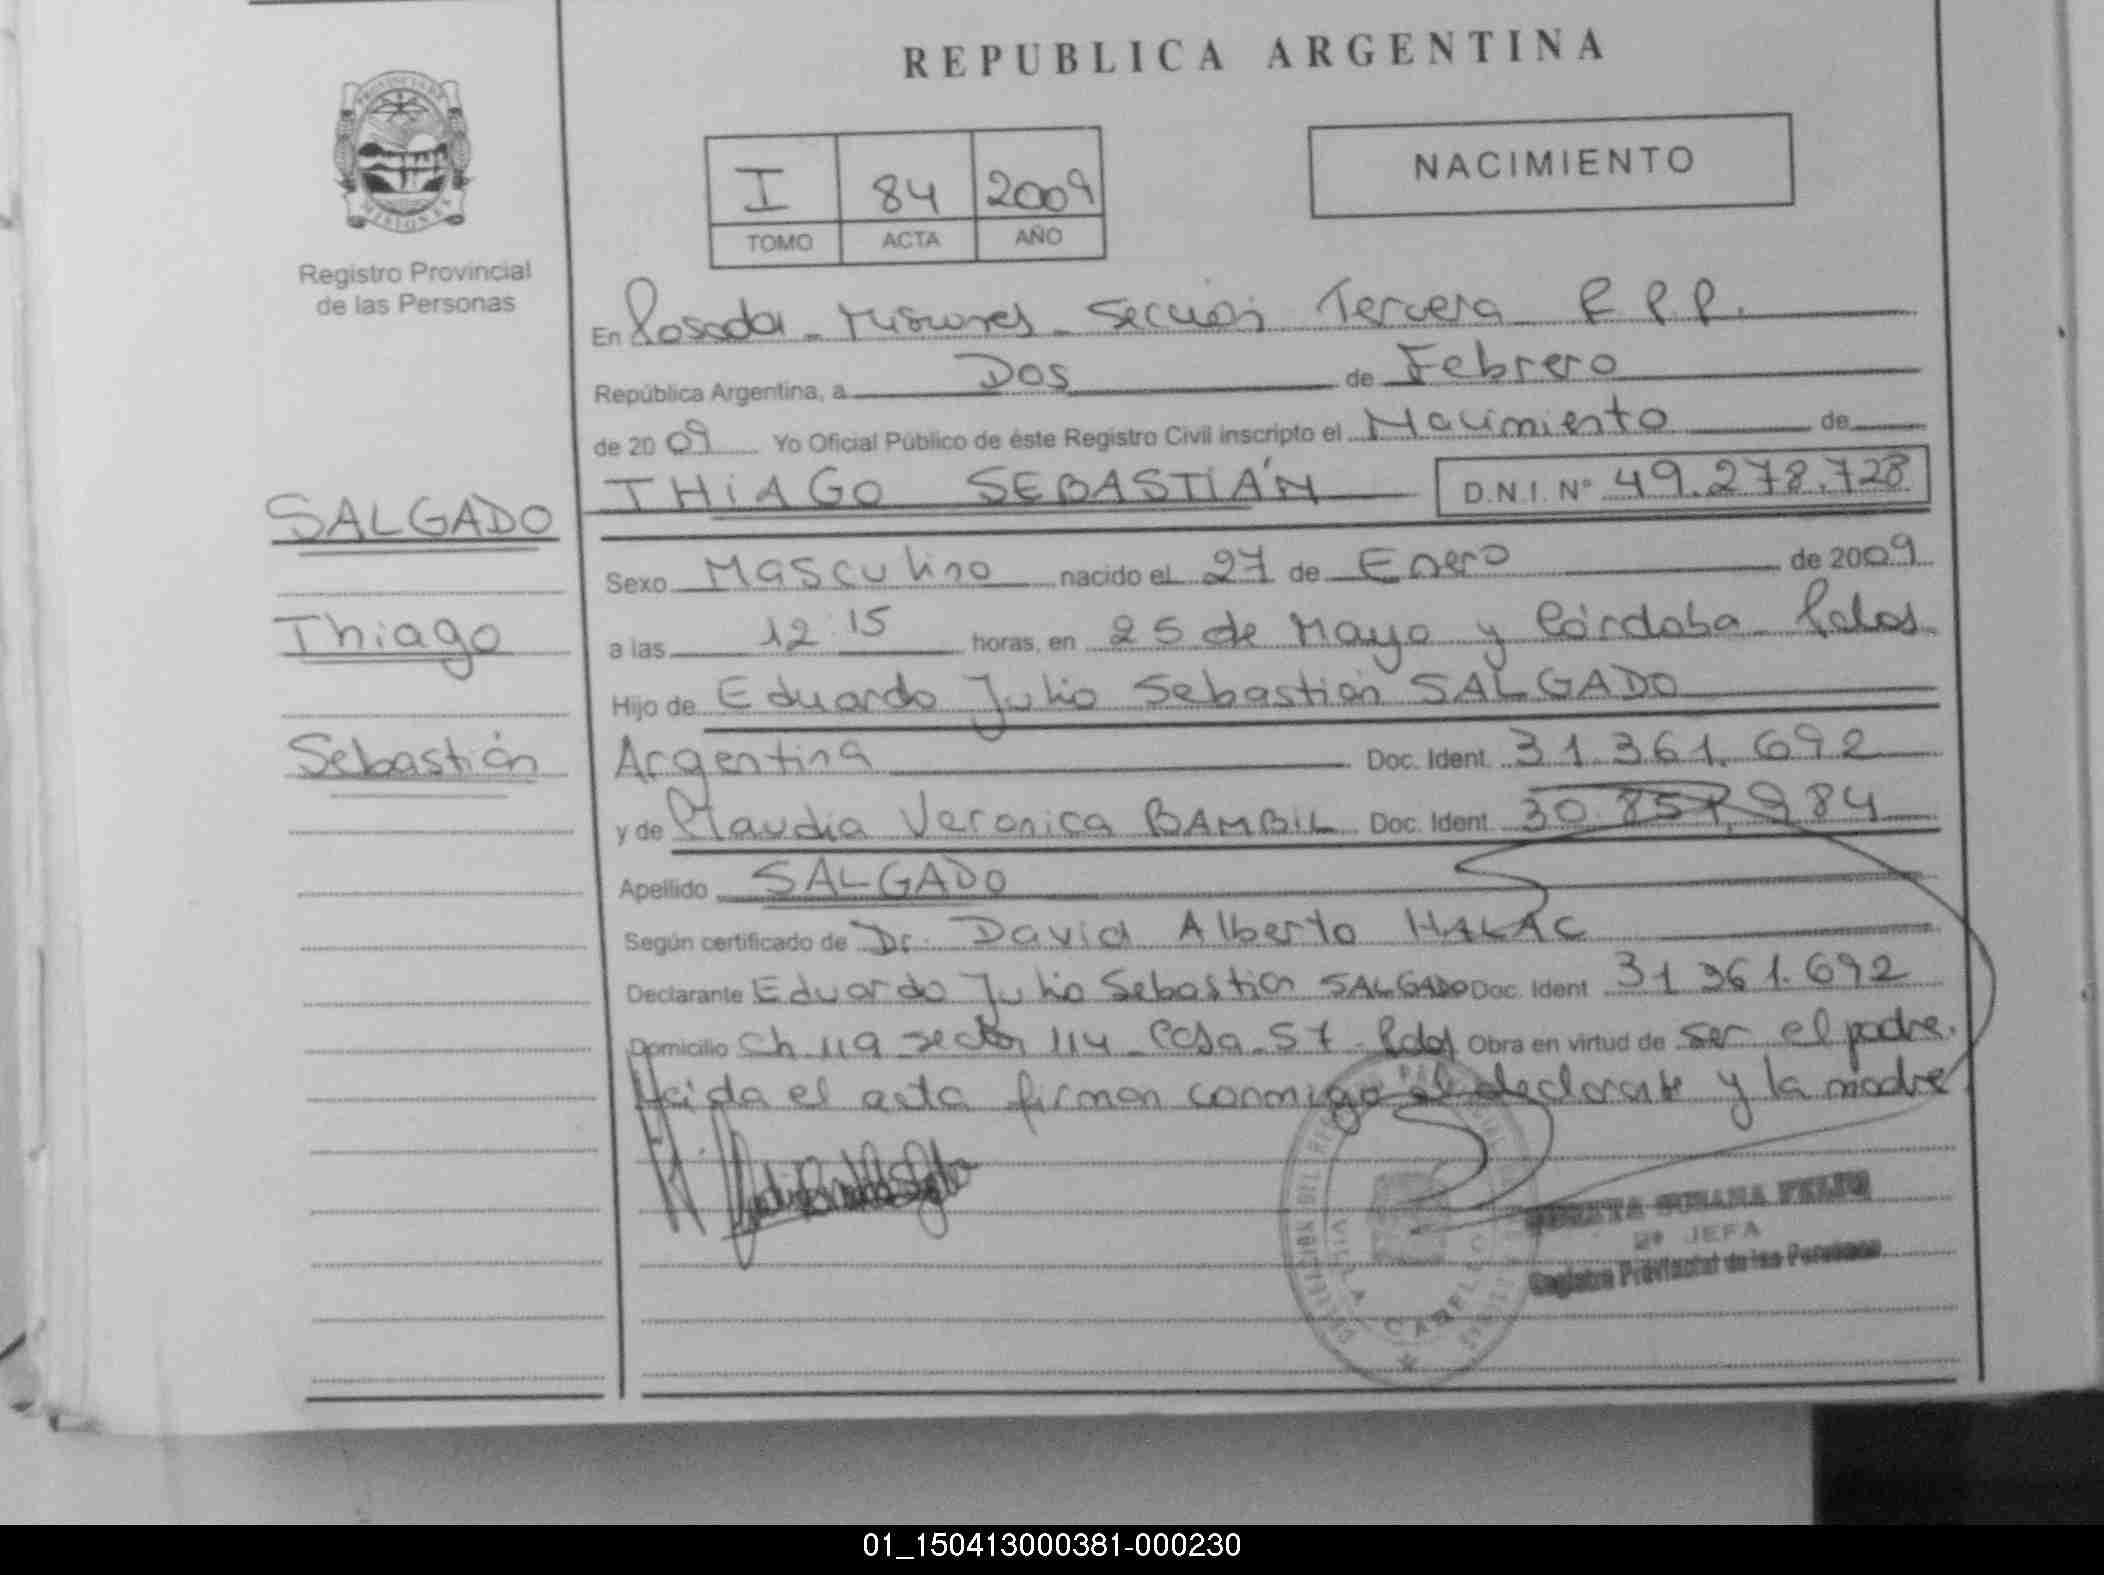 REPUBLICA ARGENTINA
PROVINCIA DE
MISIONES
Registro Provincial
de las Personas
NACIMIENTO
I 84 2009
TOMO ACTA AÑO
En Posadas - Misiones - Sección Tercera R.P.P.
República Argentina, a Dos de Febrero
de 2009 Yo Oficial Público de éste Registro Civil inscripto el Nacimiento de
THIAGO SEBASTIÁN D.N.I. Nº 49.278.728
SALGADO
Thiago
Sebastián
Sexo Masculino nacido el 27 de Enero de 2009
a las 12:15 horas, en 25 de Mayo y Córdoba - Pdas
Hijo de Eduardo Julio Sebastián SALGADO
Argentina Doc. Ident. 31.361.692
y de Claudia Veronica BAMBIL Doc. Ident. 30.857.984
Apellido SALGADO
Según certificado de Dr. David Alberto HALAC
Declarante Eduardo Julio Sebastian SALGADO Doc. Ident 31.361.692
Domicilio Ch 119 sector 114 - Casa - 57 - Pdas Obra en virtud de ser el padre.
Leida el acta firman conmigo el declarante y la madre
SUSANA
2º JEFA
Registro Provincial de las Personas
01_150413000381-000230